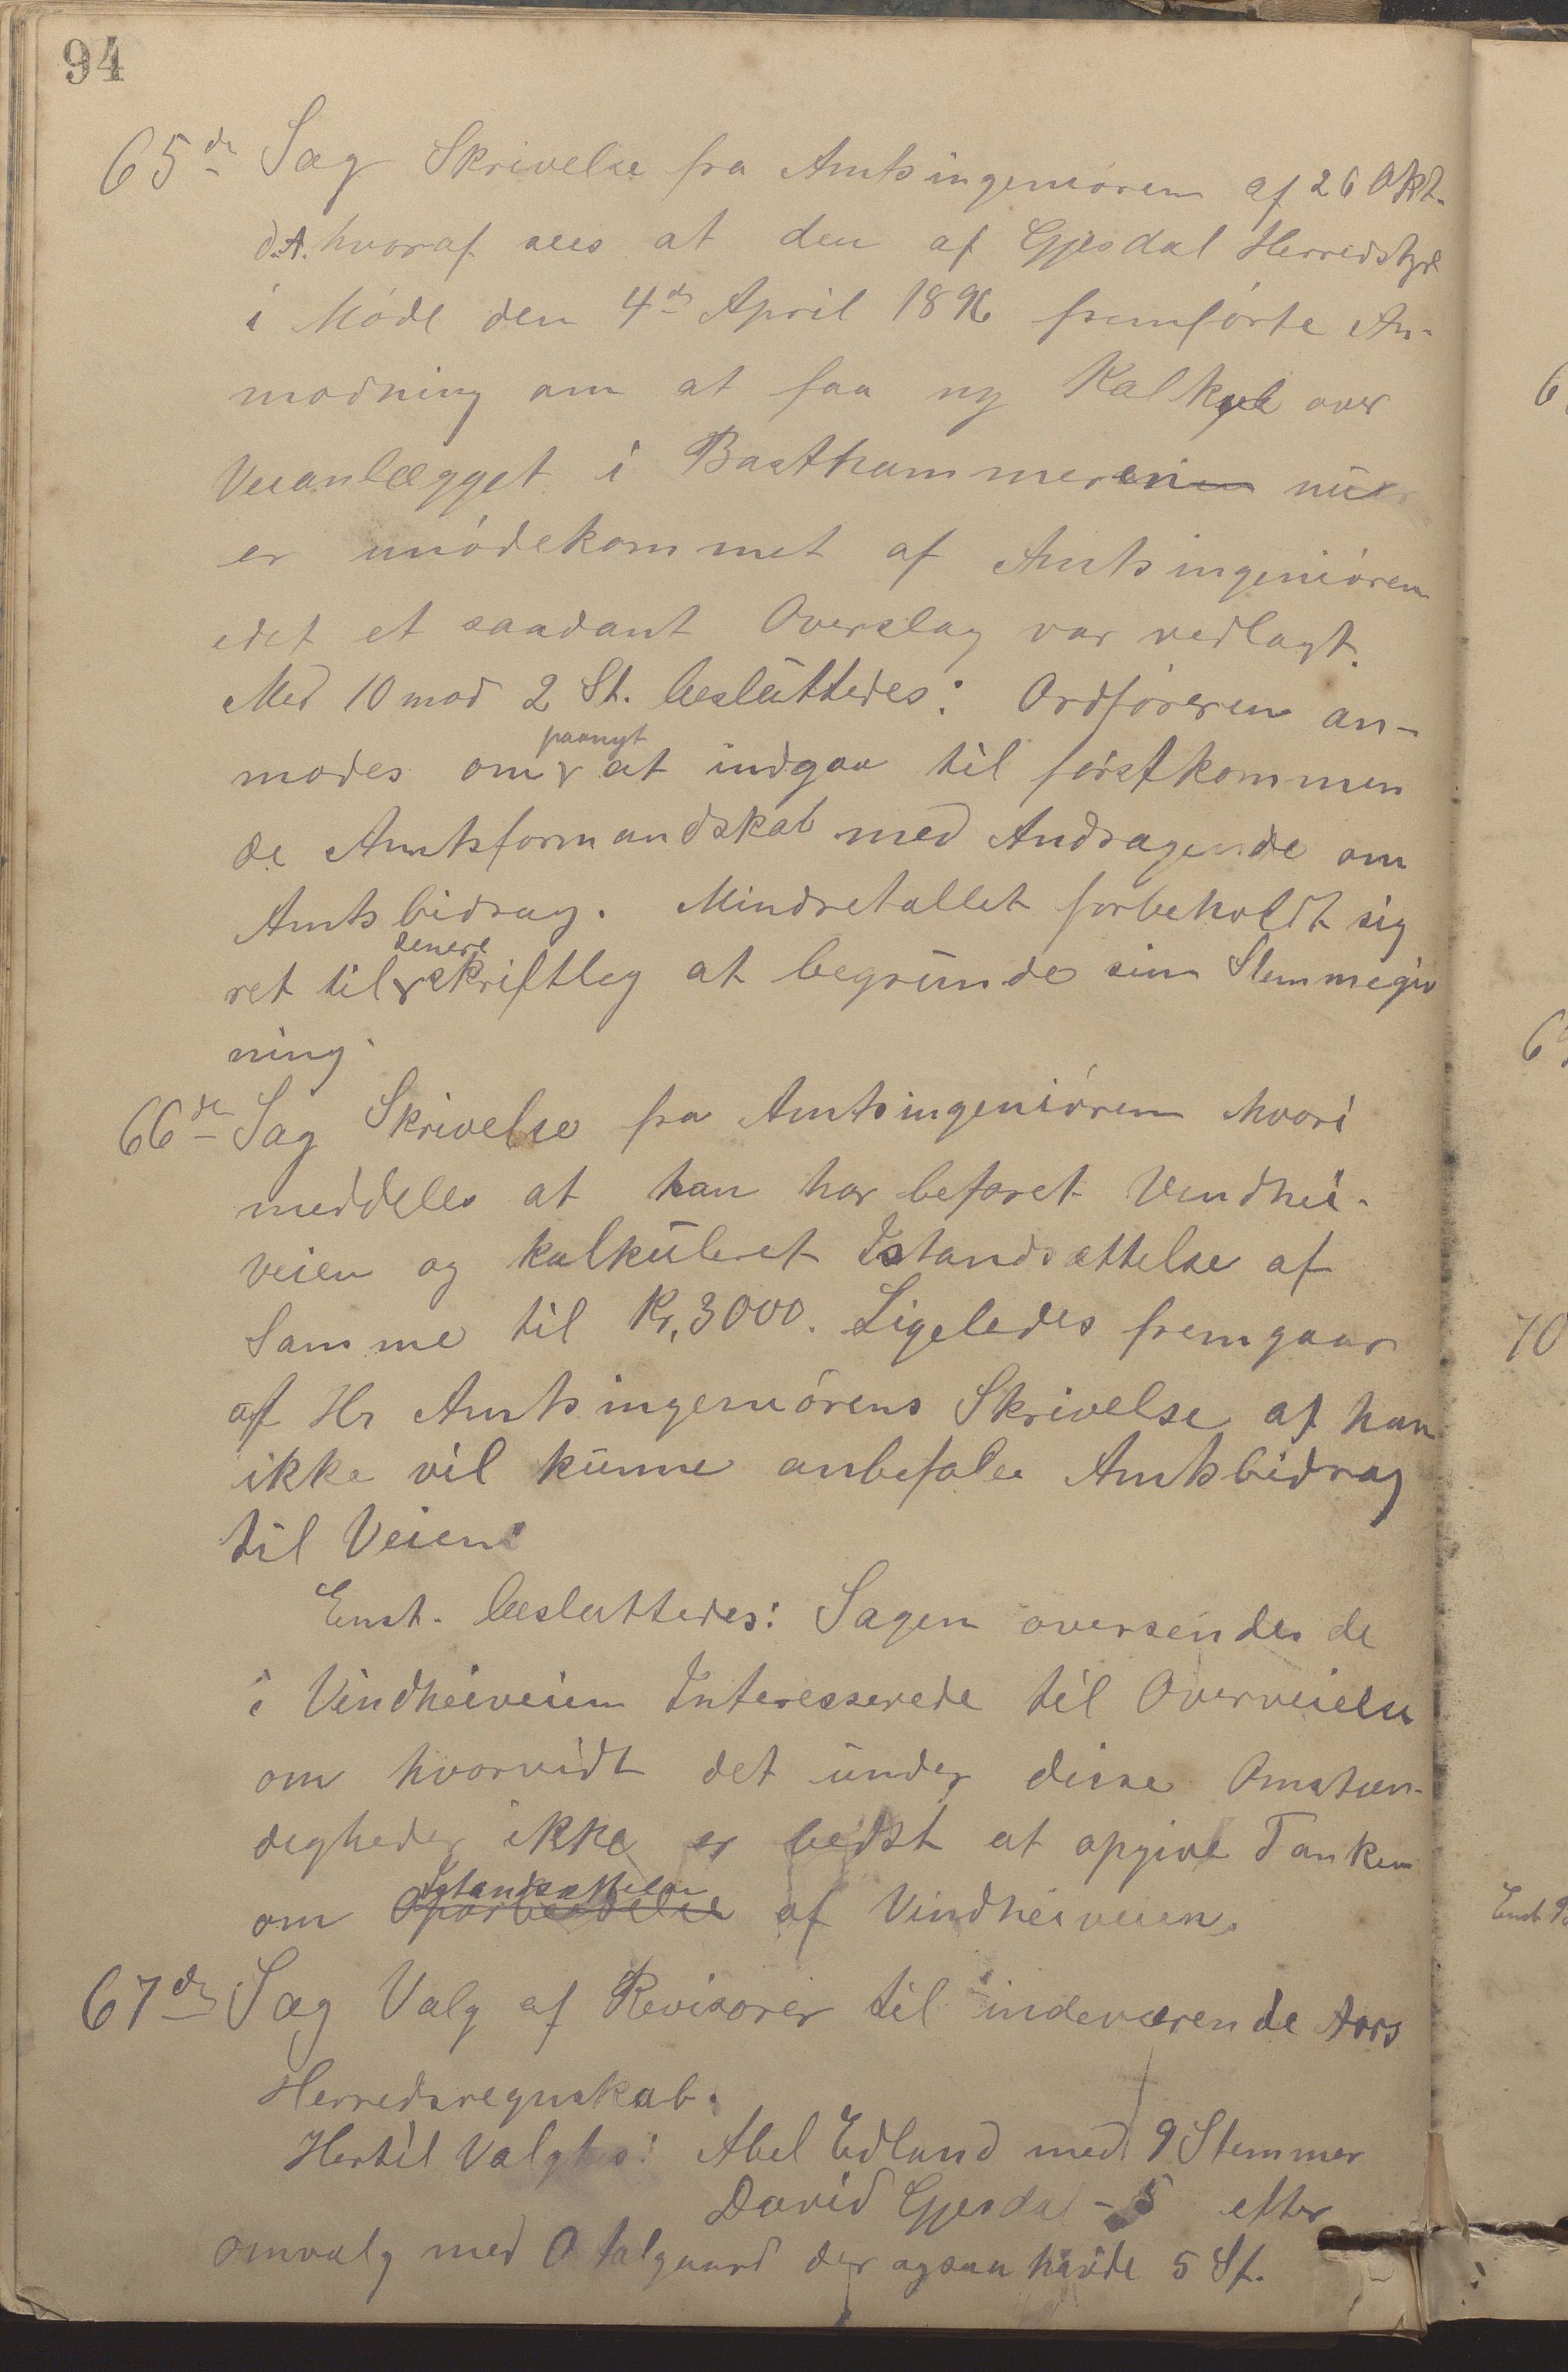 94
65de Sag Skrivelse fra Amtsingeniøren af 26 Okt.
d.A. hvoraf sees at den af Gjesdal Herredstyre
i Møde den 4de April 1896 fremførte An-
modning om at faa ny Kalkyl over
Veianlægget i Basthammeren nu
er imødekommet af Amtsingeniøren
idet et saadant Overslag var vedlagt.
Med 10 mod 2 St. besluttedes: Ordføreren an-
modes om paanyt at indgaa til førstkommen
de Amtsformandskab med Andragende om
Amtsbidrag. Mindretallet forbeholdt sig
ret til senere skriftleg at begrunde sin Stemmegiv
ning.
66de Sag Skrivelse fra Amtsingeniøren hvori
meddeles at han har befaret Vindhei-
veien og kalkuleret Istandsættelse af
Samme til Kr. 3000. Ligeledes fremgaar
af Hr Amtsingeniørens Skrivelse at han
ikke vil kunne anbefale Amtsbidrag
til Veien.
Enst. besluttedes: Sagen oversendes de
i Vindheiveien Interesserede til Overveielse
om hvorvidt det under disse Omstæn-
digheder ikke er bedst at opgive Tanken
om Istandsættelse af Vindheiveien.
67de Sag Valg af Revisorer til indeværende Aars
Herredsregnskab.
Hertil Valgtes: Abel Edland med 9 Stemmer
David Gjesdal - 5 efter
omvalg med O Aalgaard der ogsaa havde 5 St.
6
6
70
Enst